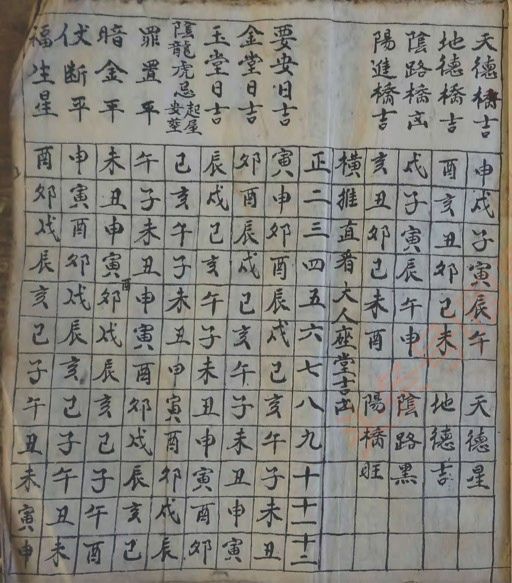 天德橋吉申戌子寅辰午天德星
地德橋吉酉亥丑卯己未地德吉
陰路橋凶戌子寅辰午申陰路黑
陽進橋吉亥丑卯己未酉陽橋旺
橫推直看大人座堂吉凶
正二三四五六七八九十十一十二
要安日吉寅申卯酉辰戌己亥午子未丑
金堂日吉卯酉辰戌己亥午子未丑申寅
玉堂日吉辰戌己亥午子未丑申寅酉卯
陰龍虎忌起屋安塟己亥午子未丑申寅酉卯戌辰
罪置平午子未丑申寅酉卯戌辰亥己
暗金平未丑申寅酉卯戌辰亥己子午酉
伏断平申寅酉卯戌辰亥己子午丑未
福生星酉卯戌辰亥己子午丑未寅申